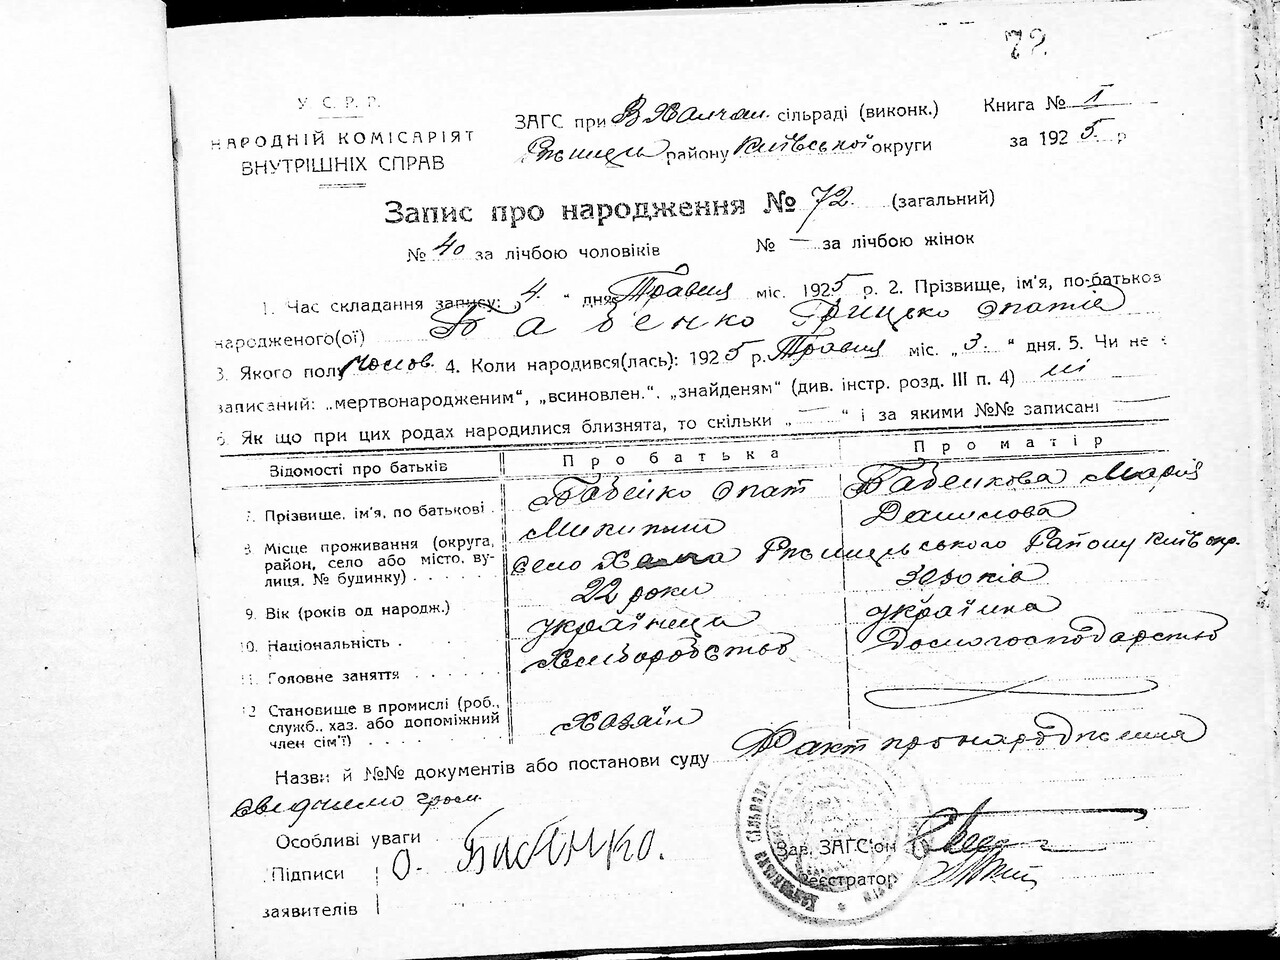 72
У. С. Р. Р.
НАРОДНІЙ КОМІСАРІЯТ
ВНУТРІШНІХ СПРАВ
ЗАГС при В Халчан. сільраді (виконк.)
Ржищів району Київської округи
Книга № 1
за 1925 р
Запис про народження № 72. (загальний)
№ 40 за лічбою чоловіків № — за лічбою жінок
1. Час складання запису: 4 " дня Травня міс. 1925 р. 2. Прізвище, ім'я, по-батьков
народженого(ої) Бабенко Грицько Опатів
3. Якого полу чолов. 4. Коли народився(лась): 1925 р. Травня міс. „ 3 " дня. 5. Чи не є
записаний: „мертвонародженим“, „всиновлен.“, „знайденям“ (див. інстр. розд. III п. 4) ні
6. Як що при цих родах народилися близнята, то скільки „ — “ і за якими №№ записані —
Зідомості про батьків Про батька Про матір
7. Прізвище, ім'я, по батькові Бабенко Опат Микитин Бабенкова Марія Данилова
8. Місце проживання (округа, район, село або місто, вулиця, № будинку) село Ржищівського Району Київ окр.
9. Вік (років од народж.) 22 роки 30 років
10. Національність українець українка
11. Головне заняття Хліборобство Домогосподарство
12 Становище в промислі (роб., служб., хаз. або допоміжний член сім'ї) Хазяїн
Назви й №№ документів або постанови суду Факт про народження
свідчимо гром.
Особливі уваги
Підписи О. Бабенко.
заявителів
Зав. ЗАГС'ом
Реєстратор